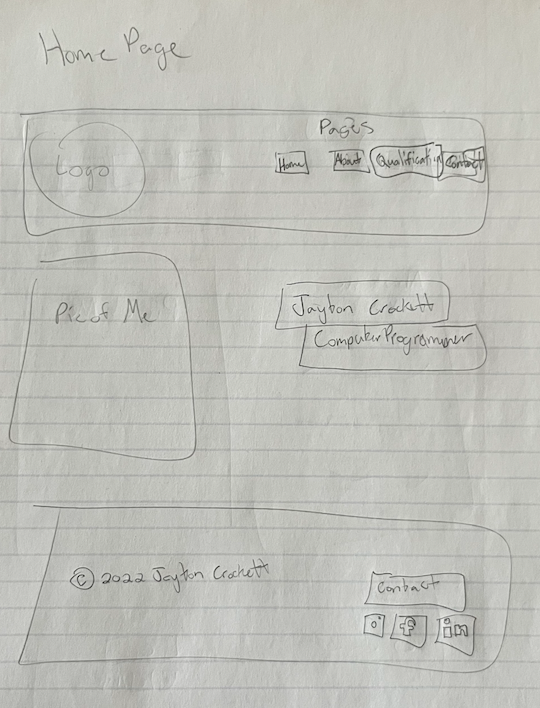 Home Page
Pages
Logo
Home About Qualification Contact
Pic of Me
Jayton Crockett
Computer Programmer
© 2022 Jayton Crockett
Contact
f in